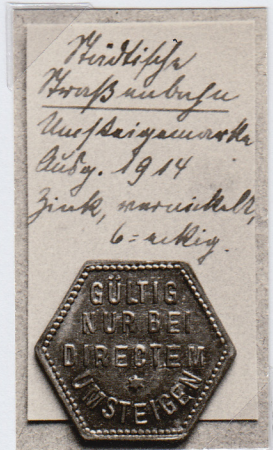 Städtische
Straßenbahn
Umsteigemarke
Ausg. 1914
Zink, vernickelt,
6=eckig.
GÜLTIG
NUR BEI
DIRECTEM
UMSTEIGEN